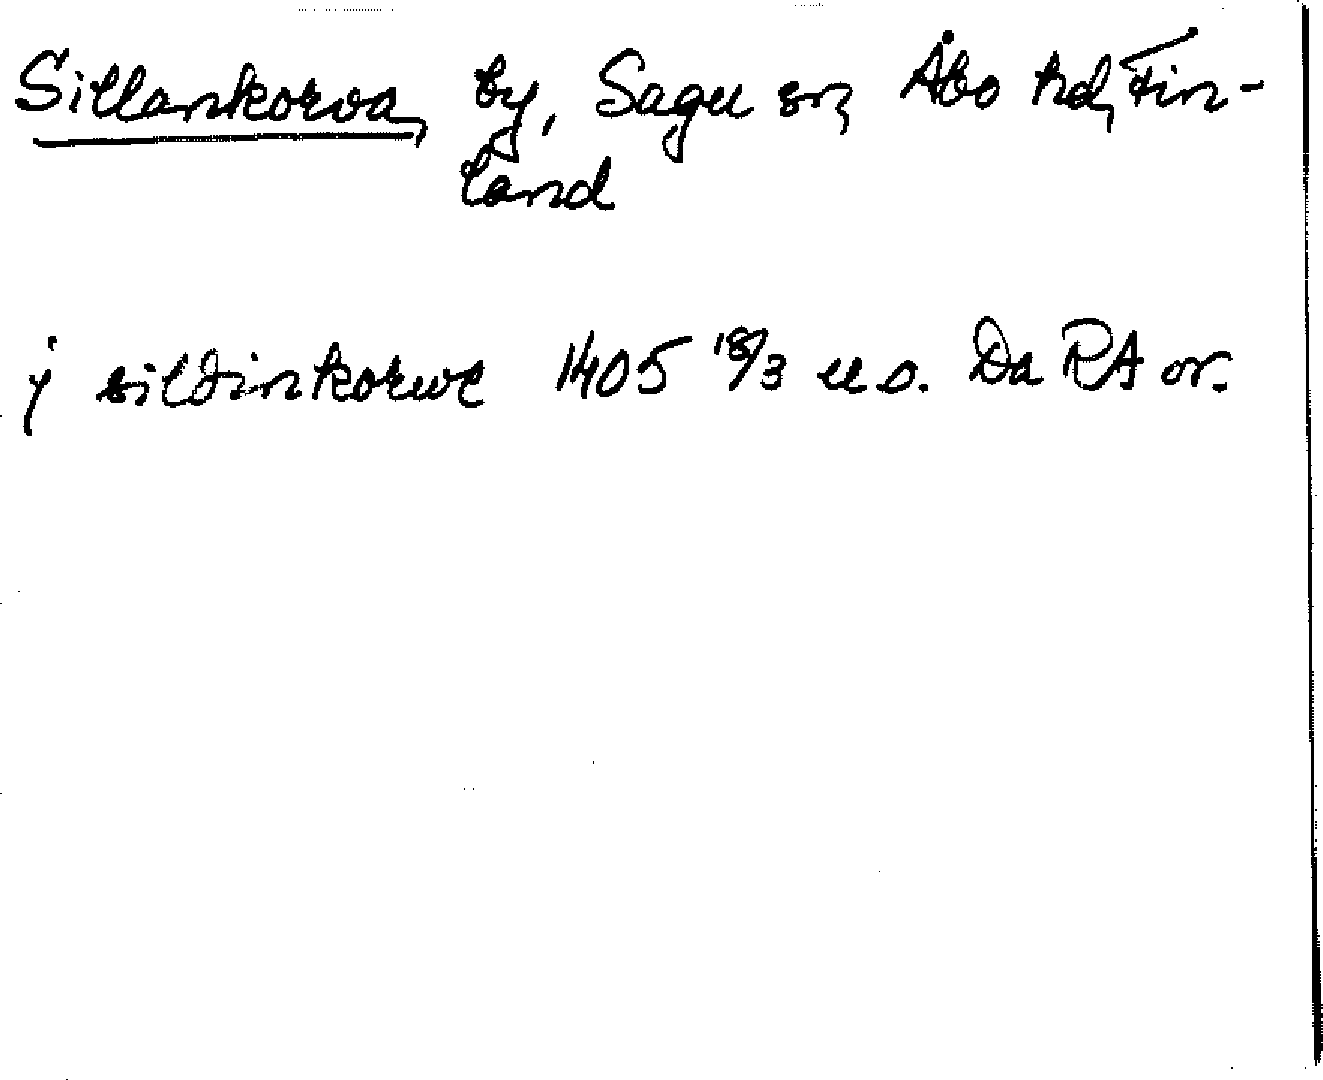 Sillankorva, by, Sagu sn, Åbo hd, Fin-
land
j sildinkorwe 1405 18/3 u o. Da RA or.